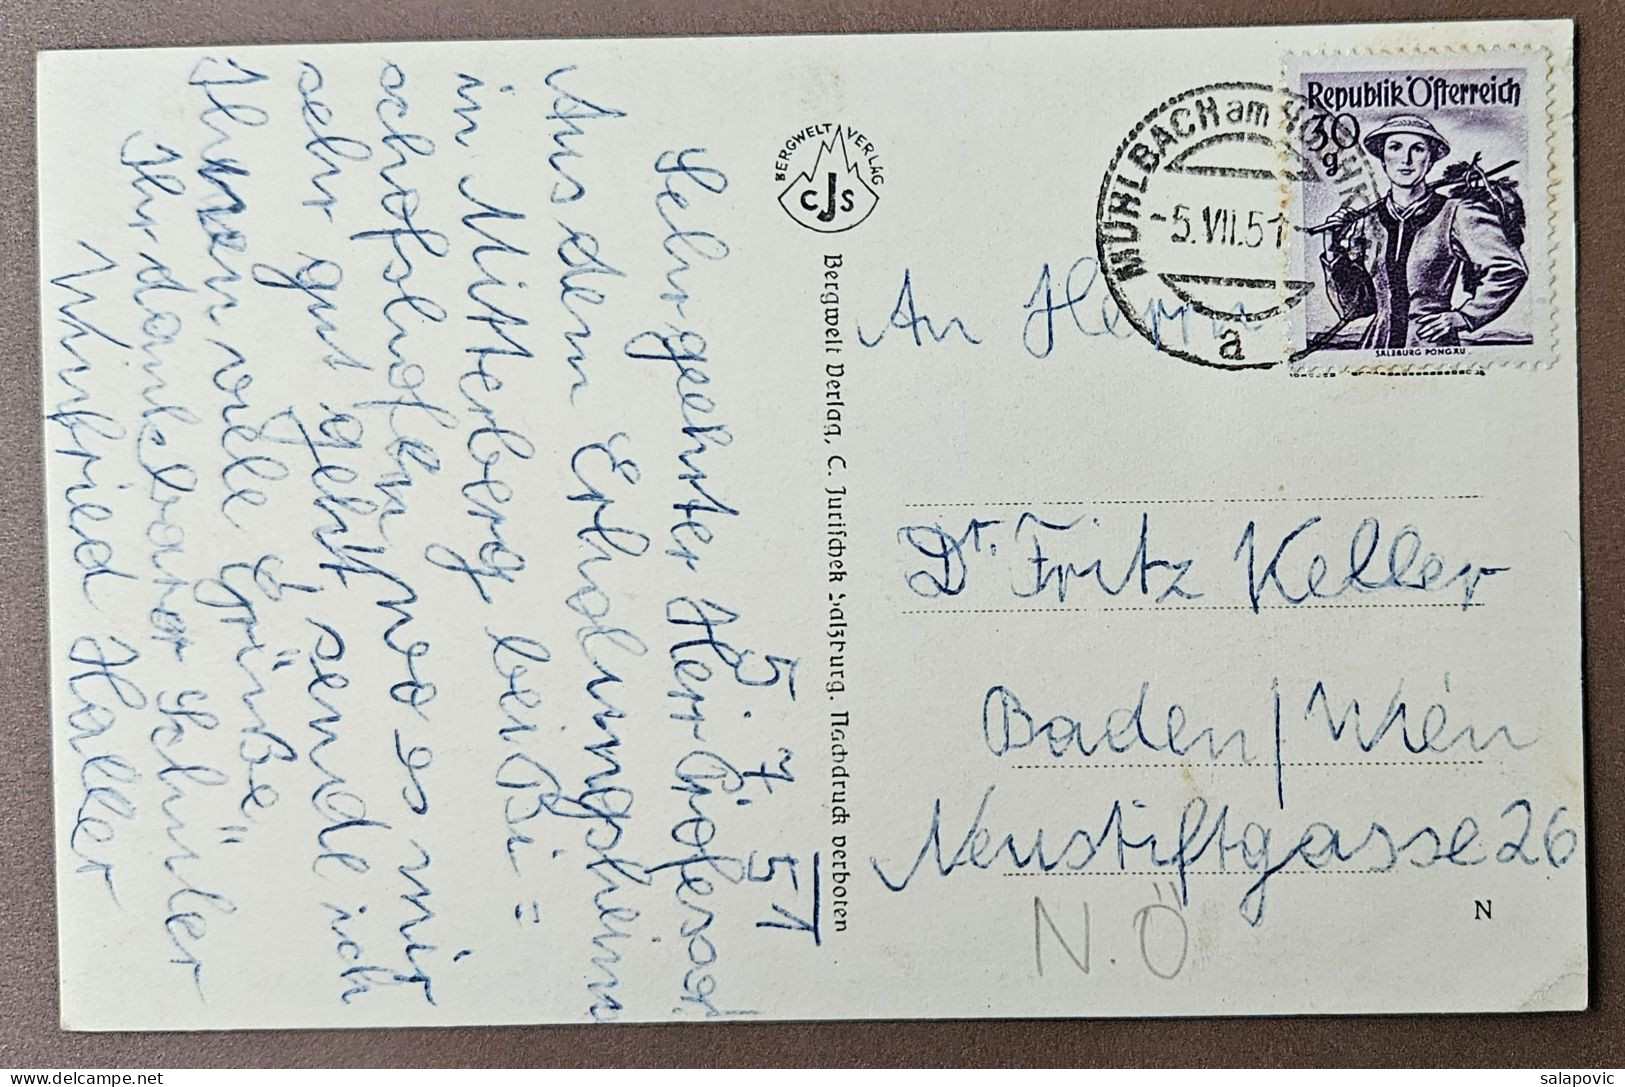 5. 7. 51
Sehrgeehrter Herr Professor!
Aus dem Erholungsheim
in Mitterberg bei Bi=
schofshofen, wo es mir
sehr gut geht, sende ich
Ihnen viele Grüße
Ihr dankbarer Schüler
Winfried Haller
BERGWELT VERLAG
CJS
Bergwelt Verlag, C. Jurischek Salzburg. Nachdruck verboten
MÜHLBACH am HOCHK
-5.VII.51
a
Republik Österreich
30
g
SALZBURG PONGAU
An Herrn
Dr. Fritz Keller
Baden/Wien
Neustiftgasse 26
N.Ö
N
delcampe.net
salapovic